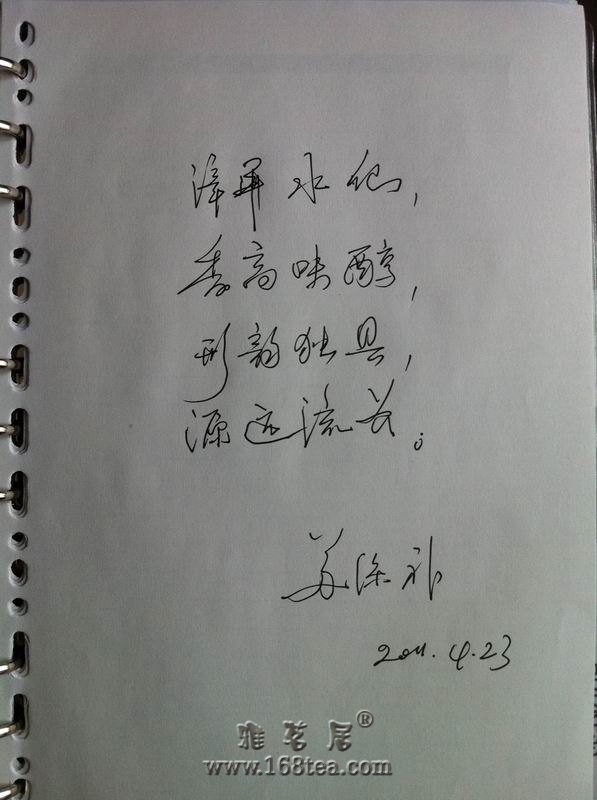 漳平水仙，
香高味醇，
形韵独具，
源远流长。
苏
2011.4.23
雅茗居®
www.168tea.com